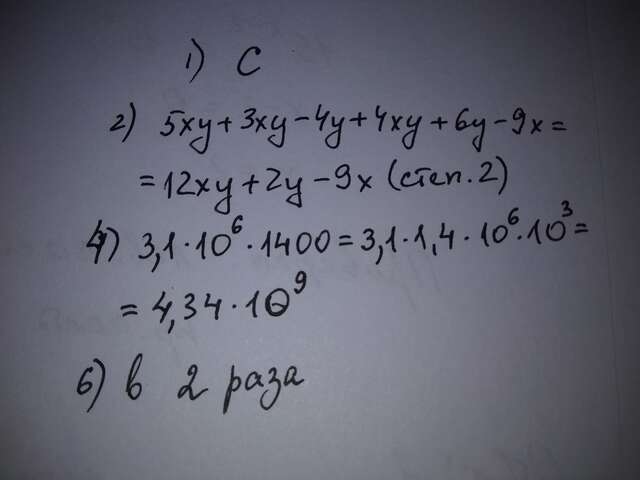 1) C
2) 5xy+3xy-4y+4xy+6y-9x=
=12xy+2y-9x (степ.2)
4) 3,1·10⁶·1400=3,1·1,4·10⁶·10³=
=4,34·10⁹
6) в 2 раза